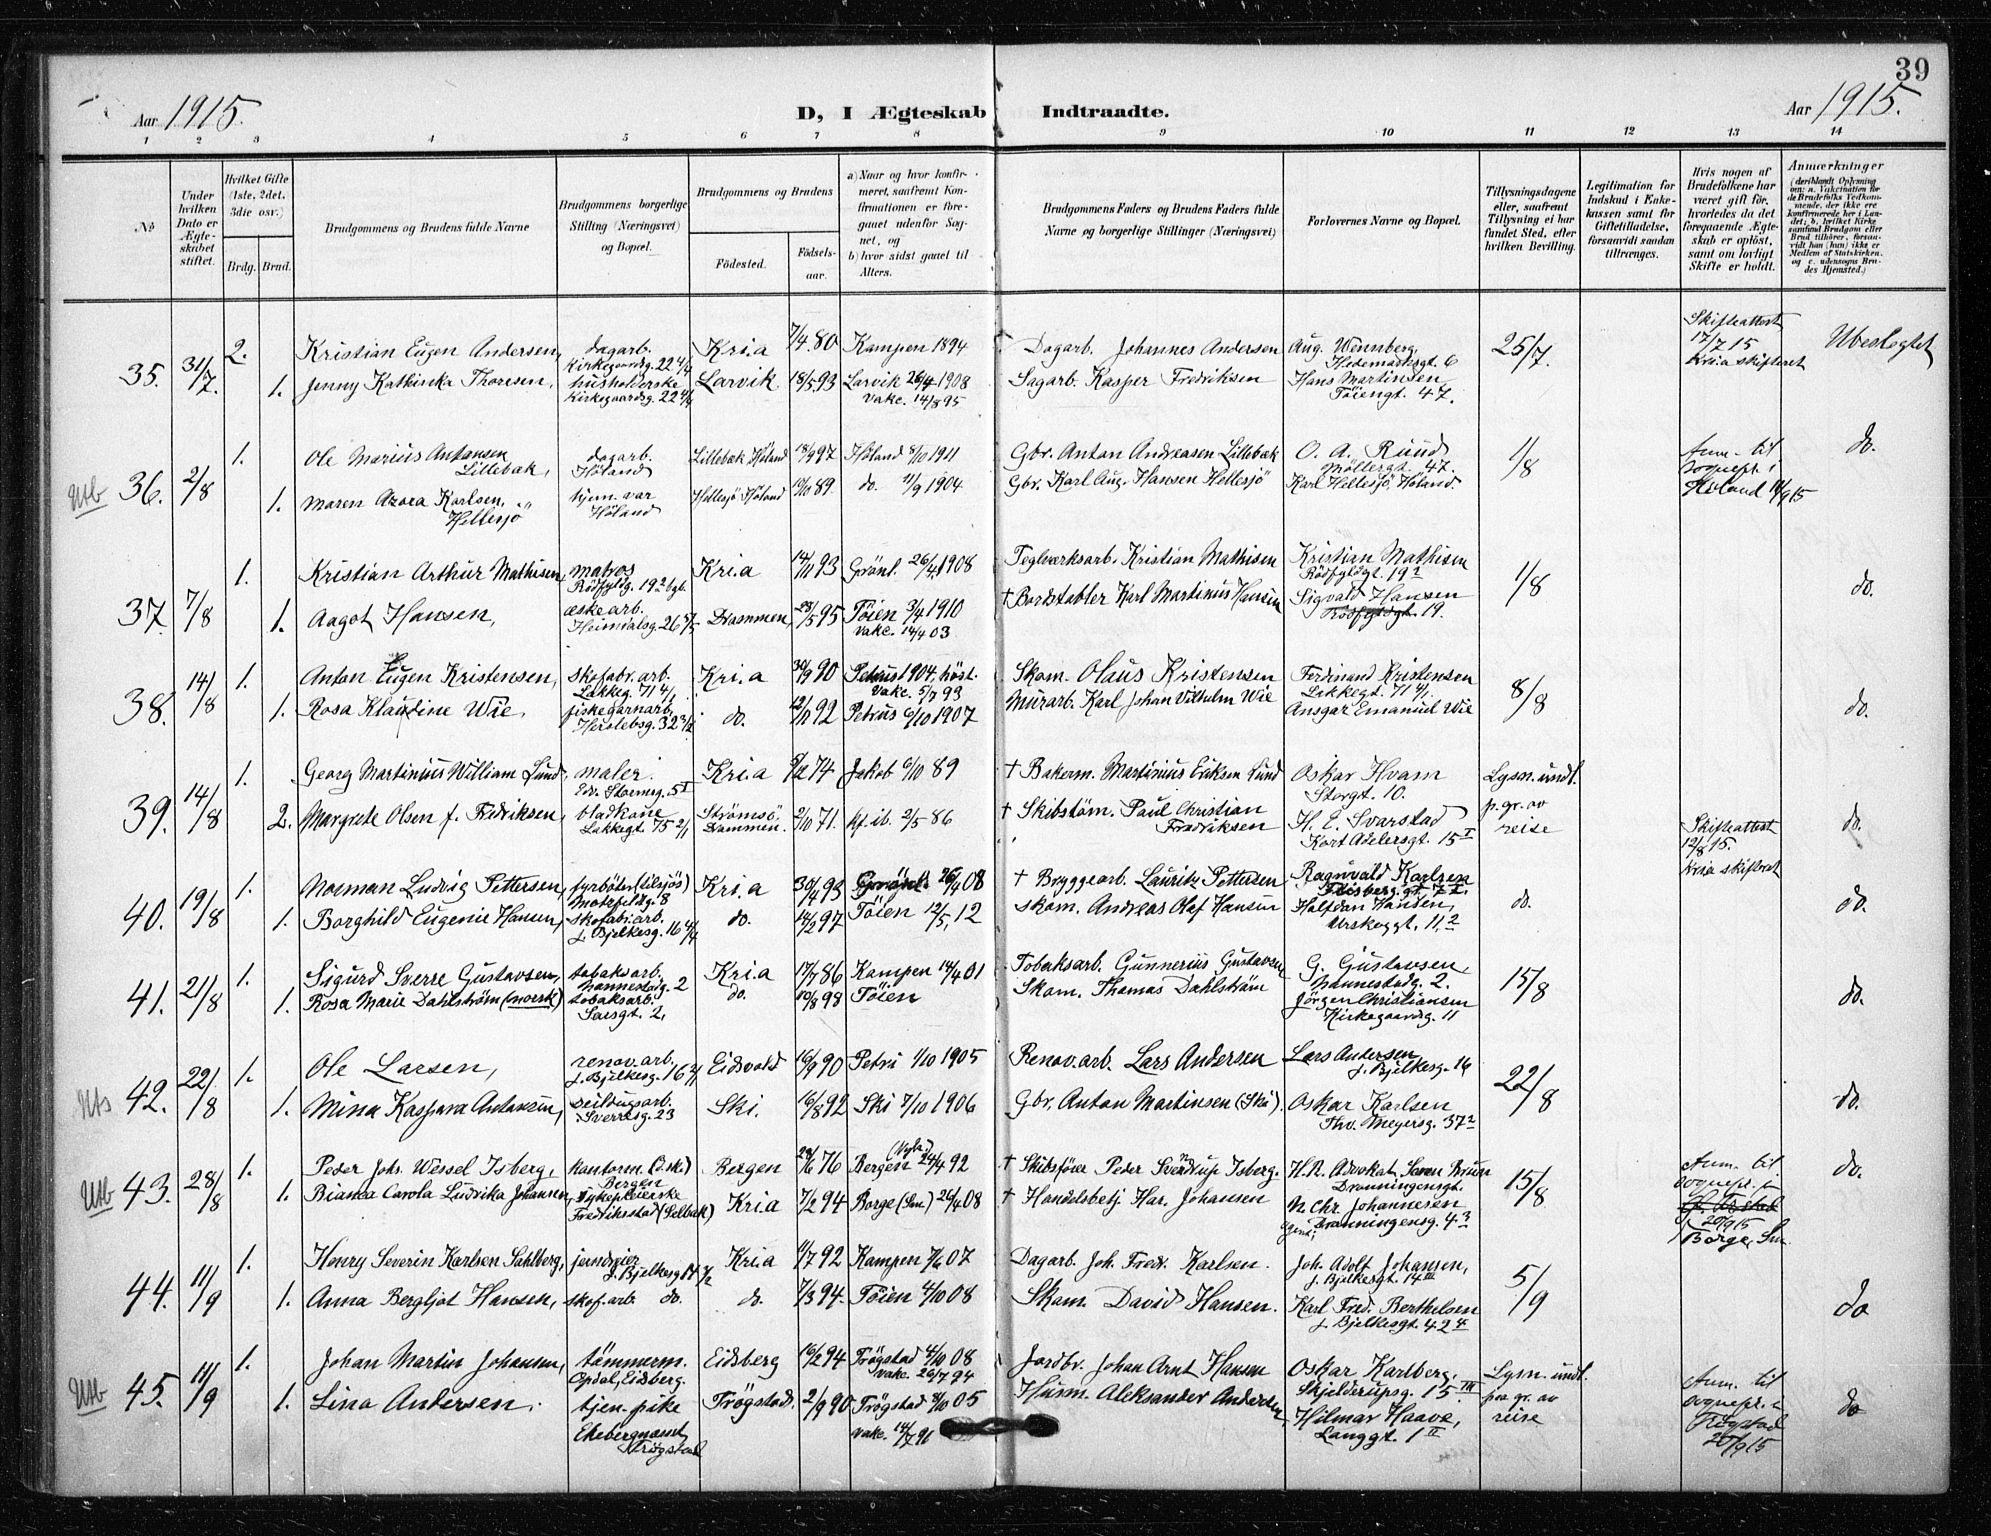 39
Aar 1915.
D, I Ægteskab Indtraadte.
Aar 1915.
1 2 3 4 5 6 7 8 9 10 11 12 13 14
No
Under hvilken Dato er Ægteskabet stiftet.
Hvilket Gifte (1ste, 2det, 3die osv.)
Brdg. Brud.
Brudgommens og Brudens fulde Navne
Brudgommens borgerlige Stilling (Næringsvei) og Bopæl.
Brudgommens og Brudens
Fødested. Fødselsaar.
a) Naar og hvor konfirmeret, saafremt Konfirmationen er foregaaet udenfor Sognet, og
b) hvor sidst gaaet til Alters.
Brudgommens Faders og Brudens Faders fulde Navne og borgerlige Stillinger (Næringsvei)
Forlovernes Navne og Bopæl.
Tillysningsdagene eller, saafremt Tillysning ei har fundet Sted, efter hvilken Bevilling.
Legitimation for Indskud i Enkekassen samt for Giftetilladelse, forsaavidt saadan tiltrænges.
Hvis nogen af Brudefolkene har været gift før, hvorledes da det foregaaende Ægteskab er opløst, samt om lovligt Skifte er holdt.
Anmærkninger
(deriblandt Oplysning om: a. Vakcination for de Brudefolks Vedkommende, der ikke ere konfirmerede her i Landet; b. hvilket Kirkesamfund Brudgom eller Brud tilhører, forsaavidt han (hun) ikke er Medlem af Statskirken, og c. udensogns Brudes Hjemsted.)
35. 31/7. 2. Kristian Eugen Andersen, dagarb. Kirkegaardsg. 22 4/4 Kr.i.a 7/4.80 Kampen 1894 Dagarb. Johannes Andersen Aug. Wennberg, Hedemarksgt 6 25/7. Skifteattest 17/7 15 Kria skifteret Ubeslegtet
1. Jenny Kathinka Thoresen, husholderske Kirkegaardsg. 22 4/4 Larvik 18/5 93 Larvik 26/4 1908 Vakc. 14/8 95 Sagarb. Kasper Fredriksen Hans Martinsen Töiengt. 47.
Utb 36. 2/8 1. Ole Marius Antonsen Lillebæk, dagarb. Höland Lillebæk Höland 18/9 97 Höland 8/10 1911 Gbr. Anton Andreasen Lillebæk O. A. Ruud Möllergt. 47. 1/8 Anm. til sognepr. i Höland 14/9 15 do.
1. Maren Azora Karlsen Hellesjö hjem. var Höland Hellesjö Höland 19/10 89. do. 11/9 1904 Gbr. Karl Aug. Hansen Hellesjö Karl Hellesjö, Höland.
37. 7/8 1. Kristian Arthur Mathisen, matros Rödfyldg. 19 2 bgb. Kr.i.a 14/11 93 Grönl. 26/4 1908 Teglverksarb. Kristian Mathisen Kristian Mathisen Rödfyldgt. 19 2 1/8 do.
1. Aagot Hansen, æskearb. Heimdalsg. 26 5/5 Drammen, 28/5 95 Töien 3/4 1910 Vakc. 14/4 03 † Bordstabler Karl Martinus Hansen Sigvald Hansen Rödfyldgt. 19.
38. 14/8 1. Anton Eugen Kristensen, skofabr. arb. Lakkeg. 71 4/1 Kr.i.a 30/9 90 Petrus 1904. höst. Vakc. 5/7 93 Skom. Olaus Kristensen Ferdinand Kristensen Lakkegt. 71 4/1. 8/8 do.
1. Rosa Klaudine Wie, fiskegarnarb. Herslebsg. 32 3/2 do. 12/11 92 Petrus 6/10 1907 Murarb. Karl Johan Vilhelm Wie Ansgar Emanuel Wie
39. 14/8 1. Georg Martinius William Lund, maler. Edv. Stormsg. 5 I Kr.i.a 9/12 74 Jakob 6/10 89 † Bakerm. Martinius Eriksen Lund Oskar Hvam Storgt. 10. Lysn. undl. p. gr. av reise Skifteattest 12/8 15. Kria skifteret do.
2. Margrete Olsen f. Fredriksen, bladkone Lakkegt. 75 2/1 Strömsö, Drammen. 2/10 71. kf. ib. 2/5 86 † Skibstöm. Paul Christian Fredriksen H. E. Svarstad Kort Adelersgt. 15 I
40. 19/8 1. Norman Ludvig Pettersen, fyrböter (tilsjös) Motzfeldtg. 8 Kr.i.a 30/4 93 Grönl. 26/4 08 † Bryggearb. Lauritz Pettersen Ragnvald Karlsen Flisberg. gt. 7 I. do. do.
1. Borghild Eugenie Hansen, skofabr. arb. J. Bjelkesg. 16 4/4 do. 14/2 97 Töien 12/5, 12 Skom. Andreas Olaf Hansen Halfdan Hansen, Urskoggt. 11, 2
41. 21/8 1. Sigurd Sverre Gustavsen, tobaksarb. Mannestadg. 2 Kr.i.a 17/7 86 Kampen 14/4 01 Tobaksarb. Gunnerius Gustavsen G. Gustavsen, Mannestadg. 2. 15/8 do.
1. Rosa Marie Dahlström (norsk) tobaksarb. Sarsgt. 2, do. 10/8 93 Töien Skom. Thomas Dahlström Jörgen Christiansen Kirkegaardsg. 11
Uts 42. 22/8 1. Ole Larsen, renov. arb. J. Bjelkesg. 16 4/1 Eidsvold 16/9 90 Petri 1/10 1905 Renov. arb. Lars Andersen Lars Andersen J. Bjelkesg. 16 22/8 do.
1. Mina Kaspara Antonsen, Seildugsarb. Sverresg. 23 Ski. 16/8 92 Ski 7/10 1906 Gbr. Anton Martinsen (Ski). Oskar Karlsen Thv. Meyersg. 37 2
Utb 43. 28/8 1. Peder Johs. Wessel Isberg, kontorm. Bergen Bergen 28/6 76 Bergen (Nyk.) 24/4 92 † Skibsförer Peder Sverdrup Isberg. H. R. Advokat Søren Bruun Dronningensgt. 15/8 Anm. til sognepr. i 20/9 15 Borge, Sm. do.
1. Bianca Carola Ludvika Johansen, sykepleierske Fredriksstad (Selbak) Kria 7/2 94 Borge (Sm.) 26/4 08 † Handelsbetj. Har. Johansen N. Chr. Johannesen agent, Dronningensg. 4 3
44. 11/9 1. Henry Severin Karlsen Sahlberg, jerndreier J. Bjelkesg 14 3/2 Kr.i.a 11/7 92 Kampen 7/6 07 Dagarb. Joh. Fredr. Karlsen. Joh. Adolf Johansen, J. Bjelkesgt. 14 III 5/9 do
1. Anna Bergljot Hansen, skof. arb. do. do. 7/3 94. Töien 4/10 08 Skom. David Hansen. Karl Fred. Berthelsen J. Bjelkesgt. 42 4
Utb 45. 11/9 1. Johan Martin Johansen, tömmerm. Opdal, Eidsberg. Eidsberg 16/2 94 Trögstad 4/10 08 Vakc. 26/7 94 Jordbr. Johan Arnt Hansen Oskar Karlberg, Skjelderupsg. 15 III Lysn. undl. paa gr. av reise Anm. til sognepr. i Trögstad 20/9 15 do
1. Lina Andersen. tjen. pike Ekebergnæset Trögstad Trögstad. 2/9 90 Trögstad 8/10 05 Vakc. 14/7 91 Husm. Aleksander Andersen Hilmar Haave, Langgt. 1 II